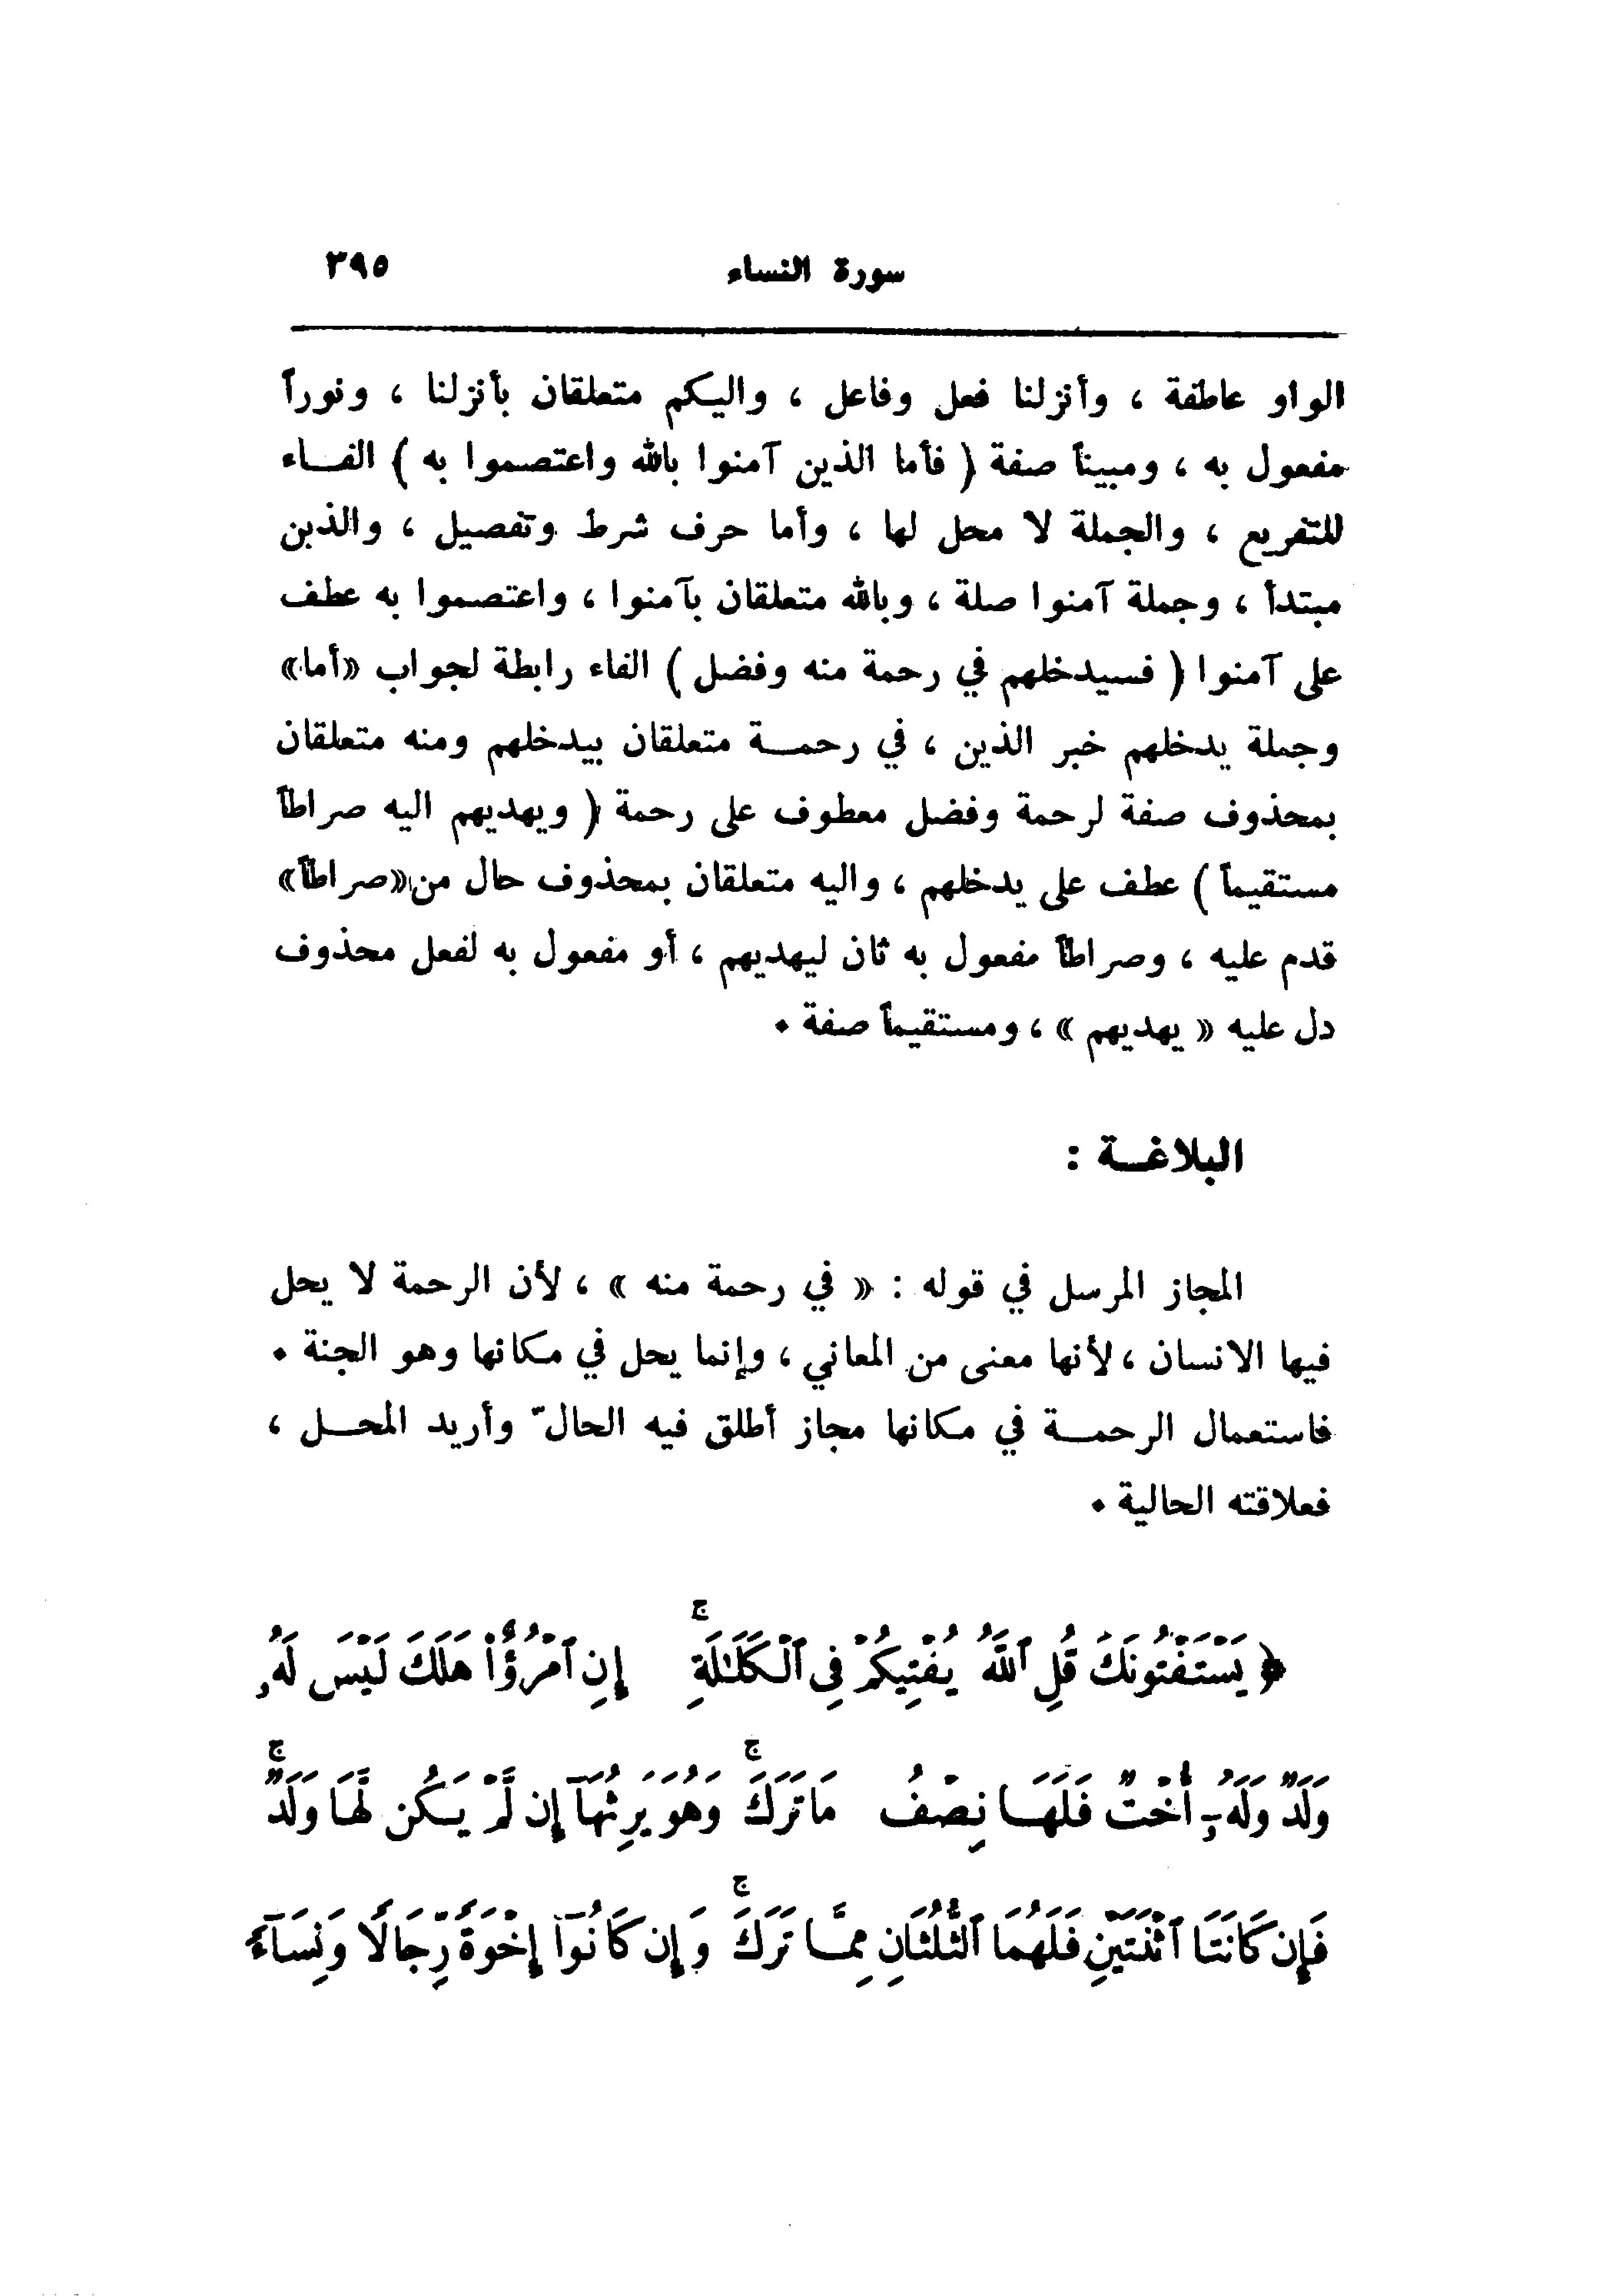 سورة النساء ٣٩٥
الواو عاطفة ، وأنزلنا فعل وفاعل ، واليكم متعلقان بأنزلنا ، ونوراً
مفعول به ، ومبيناً صفة ( فأما الذين آمنوا بالله واعتصموا به ) الفـــاء
للتفريع ، والجملة لا محل لها ، وأما حرف شرط وتفصيل ، والذين
مبتدأ ، وجملة آمنوا صلة ، وبالله متعلقان بآمنوا ، واعتصموا به عطف
على آمنوا ( فسيدخلهم في رحمة منه وفضل ) الفاء رابطة لجواب «أما»
وجملة يدخلهم خبر الذين ، في رحمـــة متعلقان بيدخلهم ومنه متعلقان
بمحذوف صفة لرحمة وفضل معطوف على رحمة ( ويهديهم اليه صراطاً
مستقيماً ) عطف على يدخلهم ، واليه متعلقان بمحذوف حال من «صراطاً»
قدم عليه ، وصراطاً مفعول به ثان ليهديهم ، أو مفعول به لفعل محذوف
دل عليه « يهديهم » ، ومستقيماً صفة .
البلاغـــة :
المجاز المرسل في قوله : « في رحمة منه » ، لأن الرحمة لا يحل
فيها الانسان ، لأنها معنى من المعاني ، وإنما يحل في مكانها وهو الجنة .
فاستعمال الرحمـــة في مكانها مجاز أطلق فيه الحالّ وأريد المحـــل ،
فعلاقته الحالية .
﴿ يَسْتَفْتُونَكَ قُلِ ٱللَّهُ يُفْتِيكُمْ فِى ٱلْكَلَـٰلَةِ ۚ إِنِ ٱمْرُؤٌا۟ هَلَكَ لَيْسَ لَهُۥ
وَلَدٌ وَلَهُۥٓ أُخْتٌ فَلَهَا نِصْفُ مَا تَرَكَ ۚ وَهُوَ يَرِثُهَآ إِن لَّمْ يَكُن لَّهَا وَلَدٌ ۚ
فَإِن كَانَتَا ٱثْنَتَيْنِ فَلَهُمَا ٱلثُّلُثَانِ مِمَّا تَرَكَ ۚ وَإِن كَانُوٓا۟ إِخْوَةً رِّجَالًا وَنِسَآءً